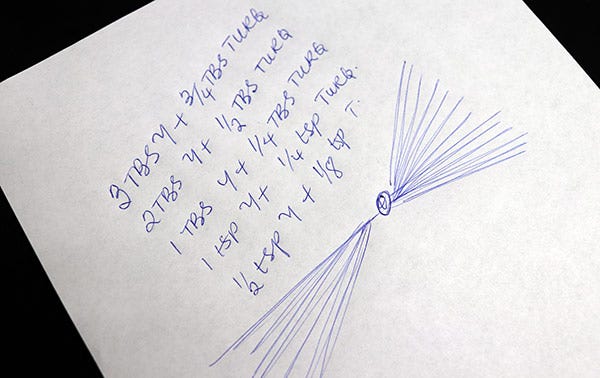 3 TBS Y + 3/4 TBS TURQ
2 TBS Y + 1/2 TBS TURQ
1 TBS Y + 1/4 TBS TURQ
1 tsp Y + 1/4 tsp TURQ.
1/2 tsp Y + 1/8 tsp T.